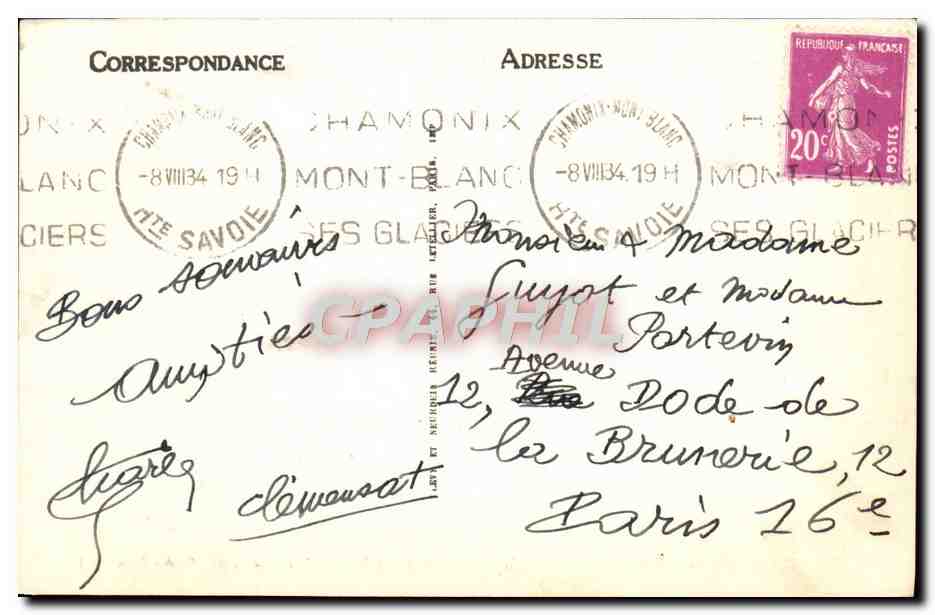 CORRESPONDANCE
ADRESSE
REPUBLIQUE FRANÇAISE
20c
POSTES
CHAMONIX-MONT-BLANC
-8 VIII 34 19 H
HTE SAVOIE
CHAMONIX
MONT-BLANC
SES GLACIERS
CHAMONIX-MONT-BLANC
-8 VIII 34. 19 H
HTE SAVOIE
MONT-BLANC
SES GLACIER
LANC
CIERS
Bons souvenirs
Amitiés
Charles
Clémensat
LEVY ET NEURDEIN RÉUNIS, 44, RUE LETELLIER, PARIS, IMP
Monsieur & Madame
Guyot et Madame
Portevin
Avenue
12, Dode de
la Brunerie, 12
Paris 16e
CPAPHIL